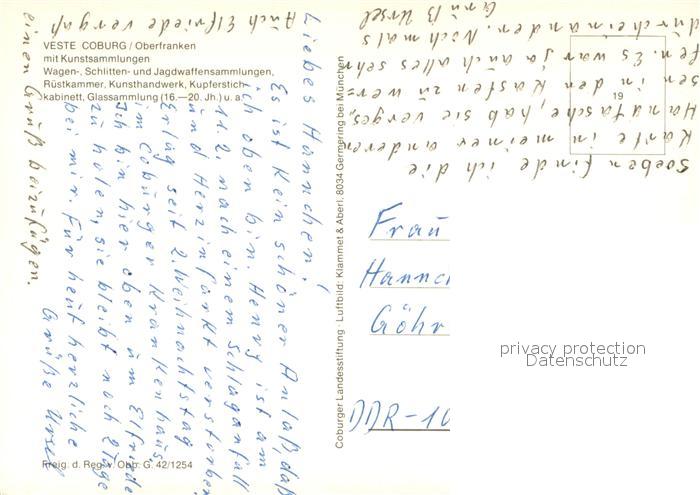 VESTE COBURG / Oberfranken
mit Kunstsammlungen
Wagen-, Schlitten- und Jagdwaffensammlungen,
Rüstkammer, Kunsthandwerk, Kupferstich-
kabinett, Glassammlung (16.—20. Jh.) u. a.
Liebes Hannchen!
Es ist kein schöner Anlaß, daß
ich oben bin. Henry ist am
11.2. nach einem Schlaganfall
und Herzinfarkt verstorben.
Er lag seit 2. Weihnachtstag
im Coburger Krankenhaus.
Ich bin hier oben um Elfriede
zu holen, sie bleibt noch Tage
bei mir. Für heut herzliche
Grüße Ursel
Auch Elfriede vergaß
einen Gruß beizufügen.
Soeben finde ich die
Karte in meiner anderen
Handtasche, hab sie verges,
sen in den Kasten zu wer
fen. Es war ja auch alles sehr
durcheinander. Nochmals
Gruß Ursel
19
Coburger Landesstiftung · Luftbild: Klammet & Aberl, 8034 Germering bei München
Frau
Hannc
Göhr
DDR-10
privacy protection
Datenschutz
Freig. d. Reg. v. Obb. G. 42/1254